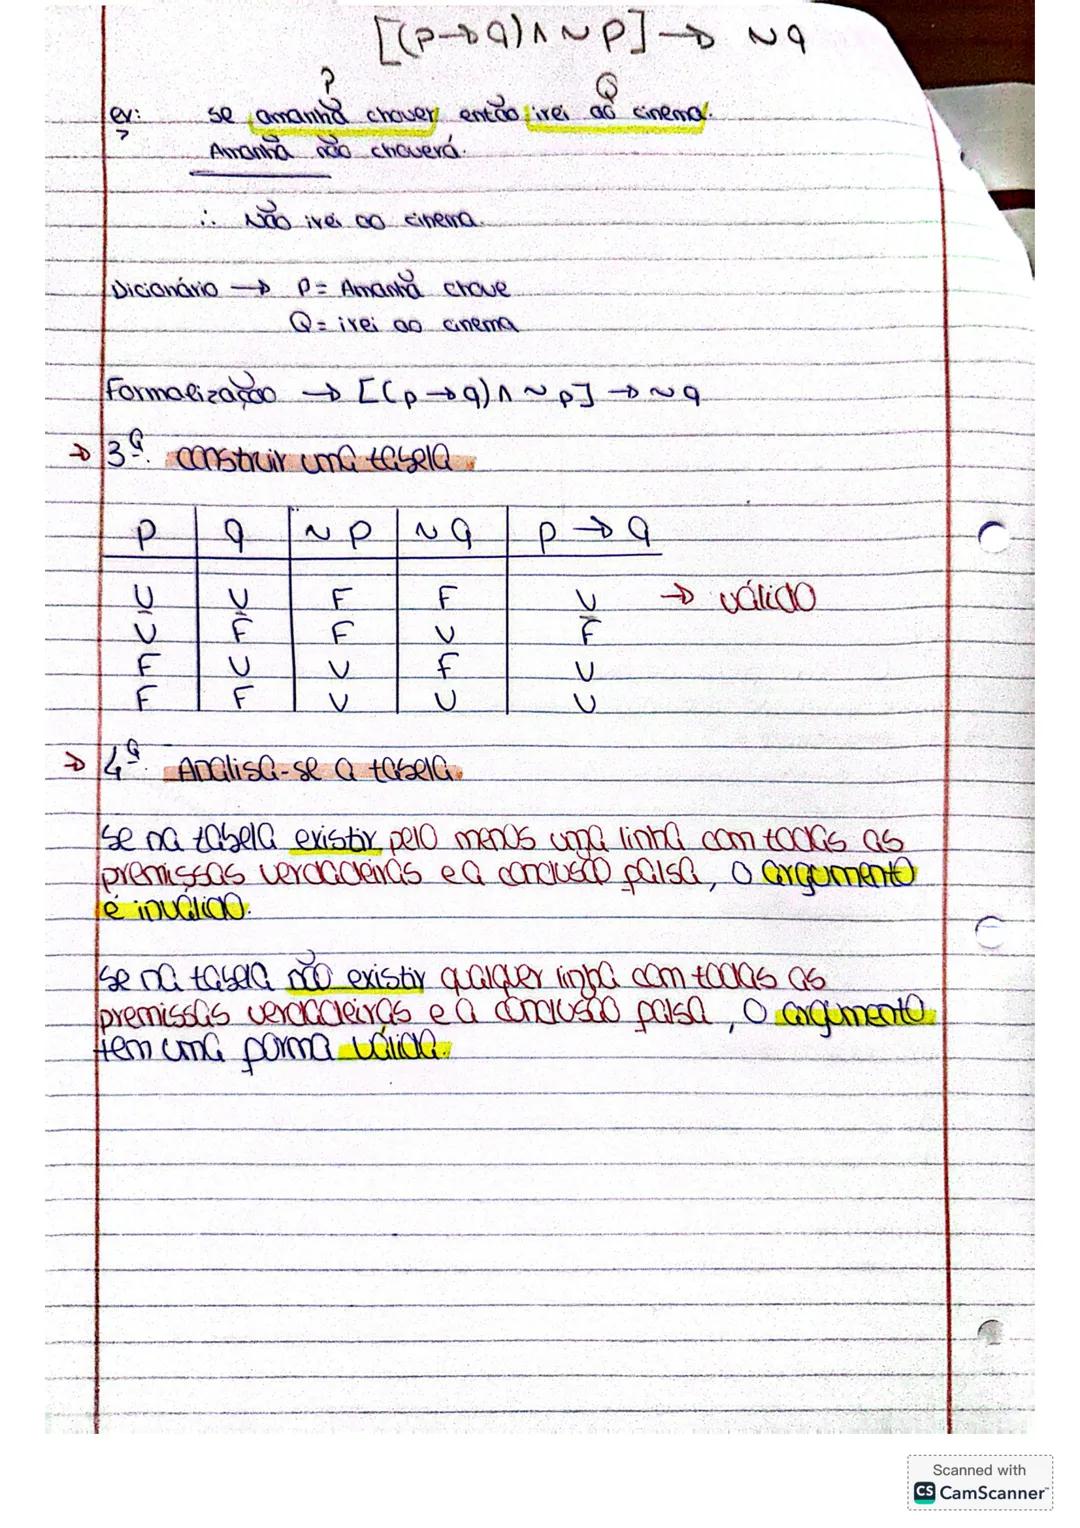 [(p→q)∧~p]→ ~q
P Q
ex: se amanhã chover, então irei ao cinema.
Amanhã não choverá.
∴ Não irei ao cinema.
Dicionário → P= Amanhã chove
Q= irei ao cinema
Formalização → [(p→q)∧~p]→~q
→ 3º. construir uma tabela
p q ~p ~q p→q
V V F F V → válido
V F F V F
F V V F V
F F V V V
→ 4º. Analisa-se a tabela.
se na tabela existir pelo menos uma linha com todas as
premissas verdadeiras e a conclusão falsa, o argumento
é inválido.
se na tabela não existir qualquer linha com todas as
premissas verdadeiras e a conclusão falsa, o argumento
tem uma forma válida.
Scanned with
CS CamScanner